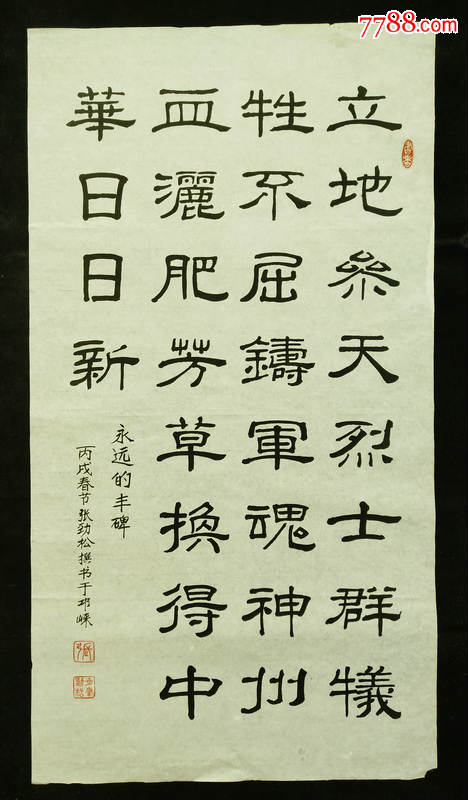 7788.com
立地參天烈士群犧
牲不屈鑄軍魂神州
血灑肥芳草換得中
華日日新
永远的丰碑
丙戌春节张劲松撰书于邛崃